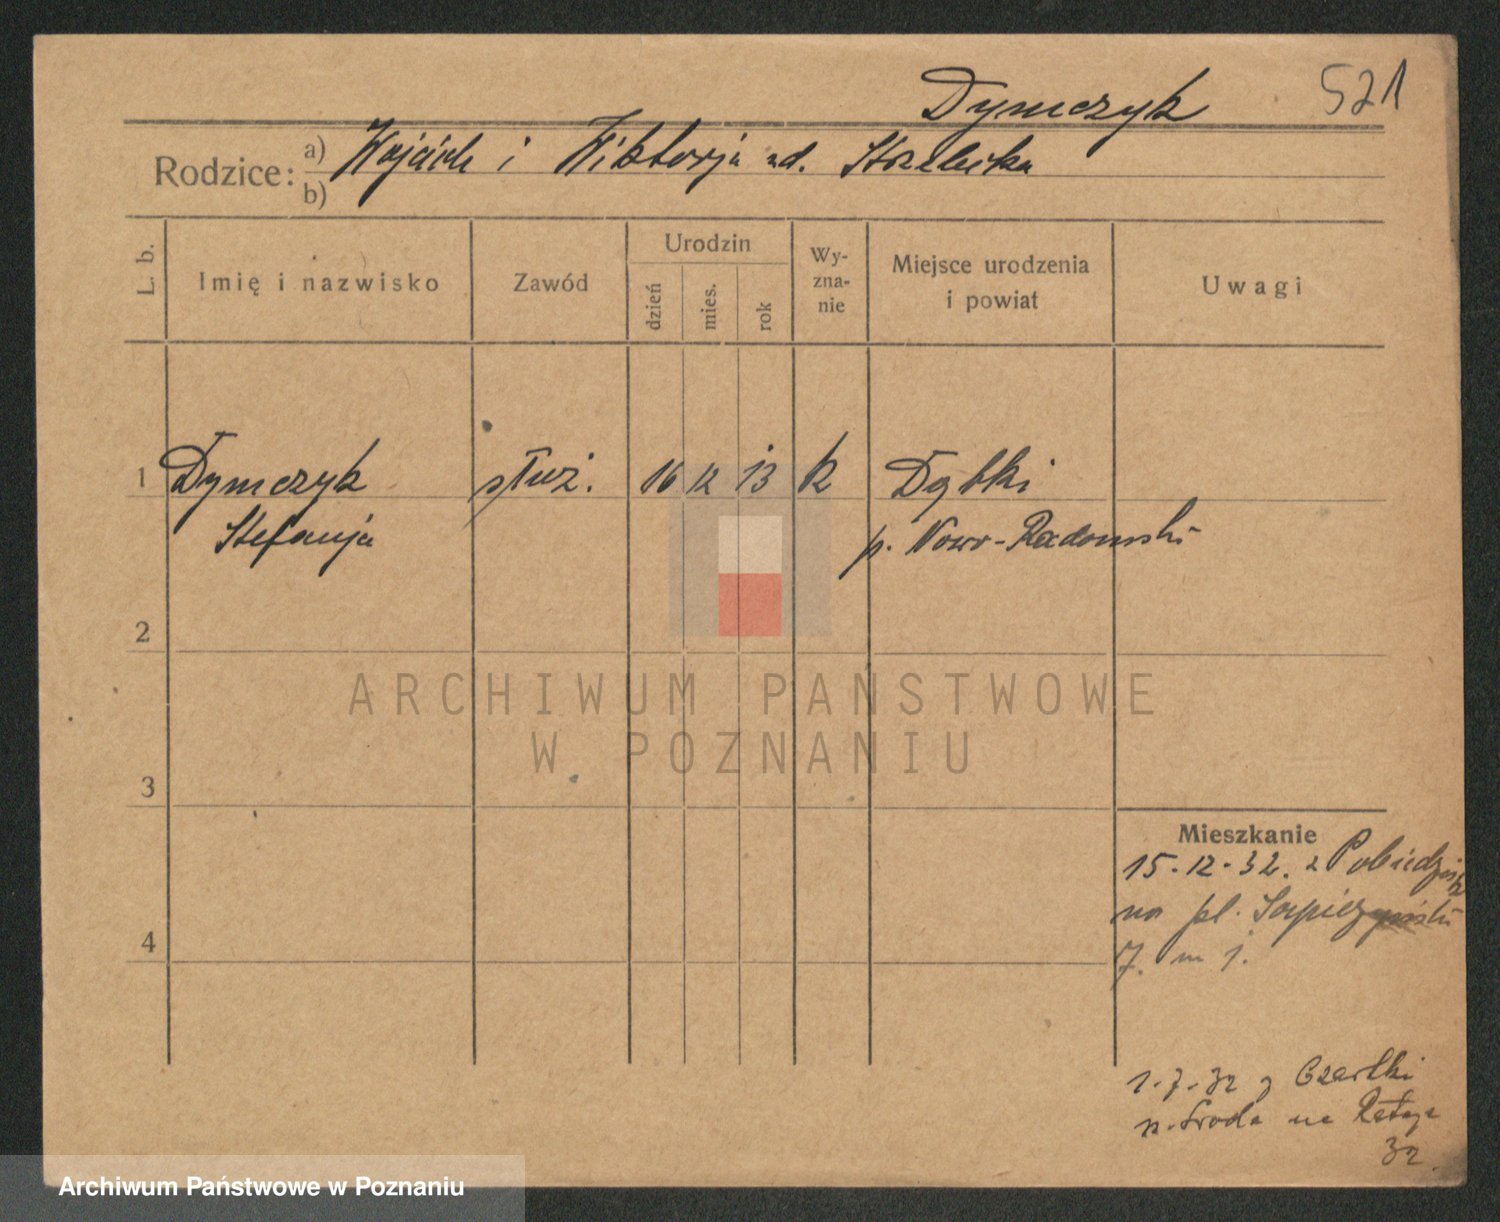 Dymczyk 521
Rodzice: a) Wojciech i Wiktorja zd. Strzelecka
b)
L. b.
Imię i nazwisko
Zawód
Urodzin
dzień
mies.
rok
Wy-
zna-
nie
Miejsce urodzenia
i powiat
Uwagi
1 Dymczyk służ. 16 12 13 k Dąbki
Stefanja p. Nowo-Radomski
2
3
4
Mieszkanie
15-12-32. z Pobiedzisk
na pl. Sapieżyński
7. m 1.
1-7-32 z Czartki
p. Środa na Rataje
32
ARCHIWUM PAŃSTWOWE
W POZNANIU
Archiwum Państwowe w Poznaniu